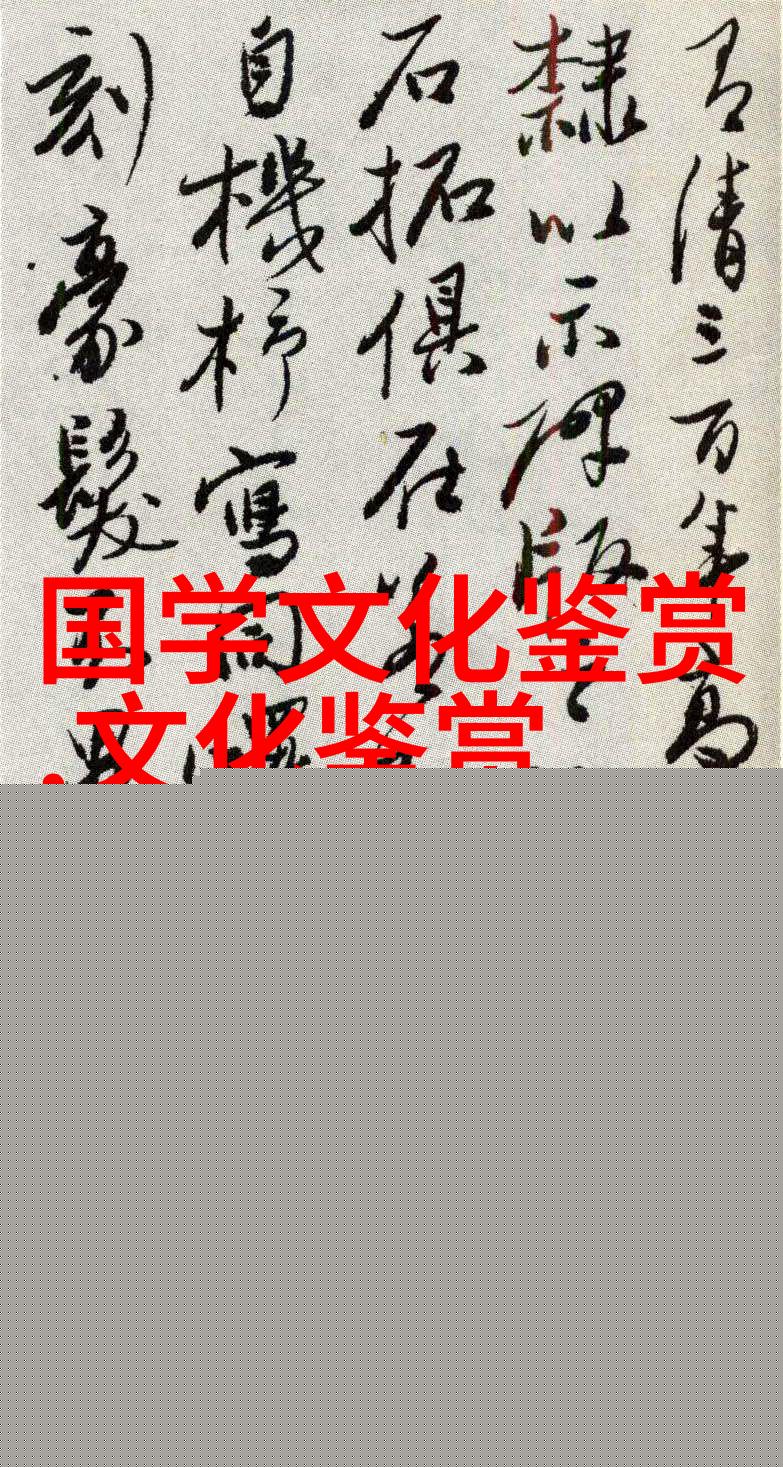 有清三百年 高
隸以示碑版
石拓俱在
自機杼寫
刻豪髮
国学文化鉴赏
·文化鉴赏